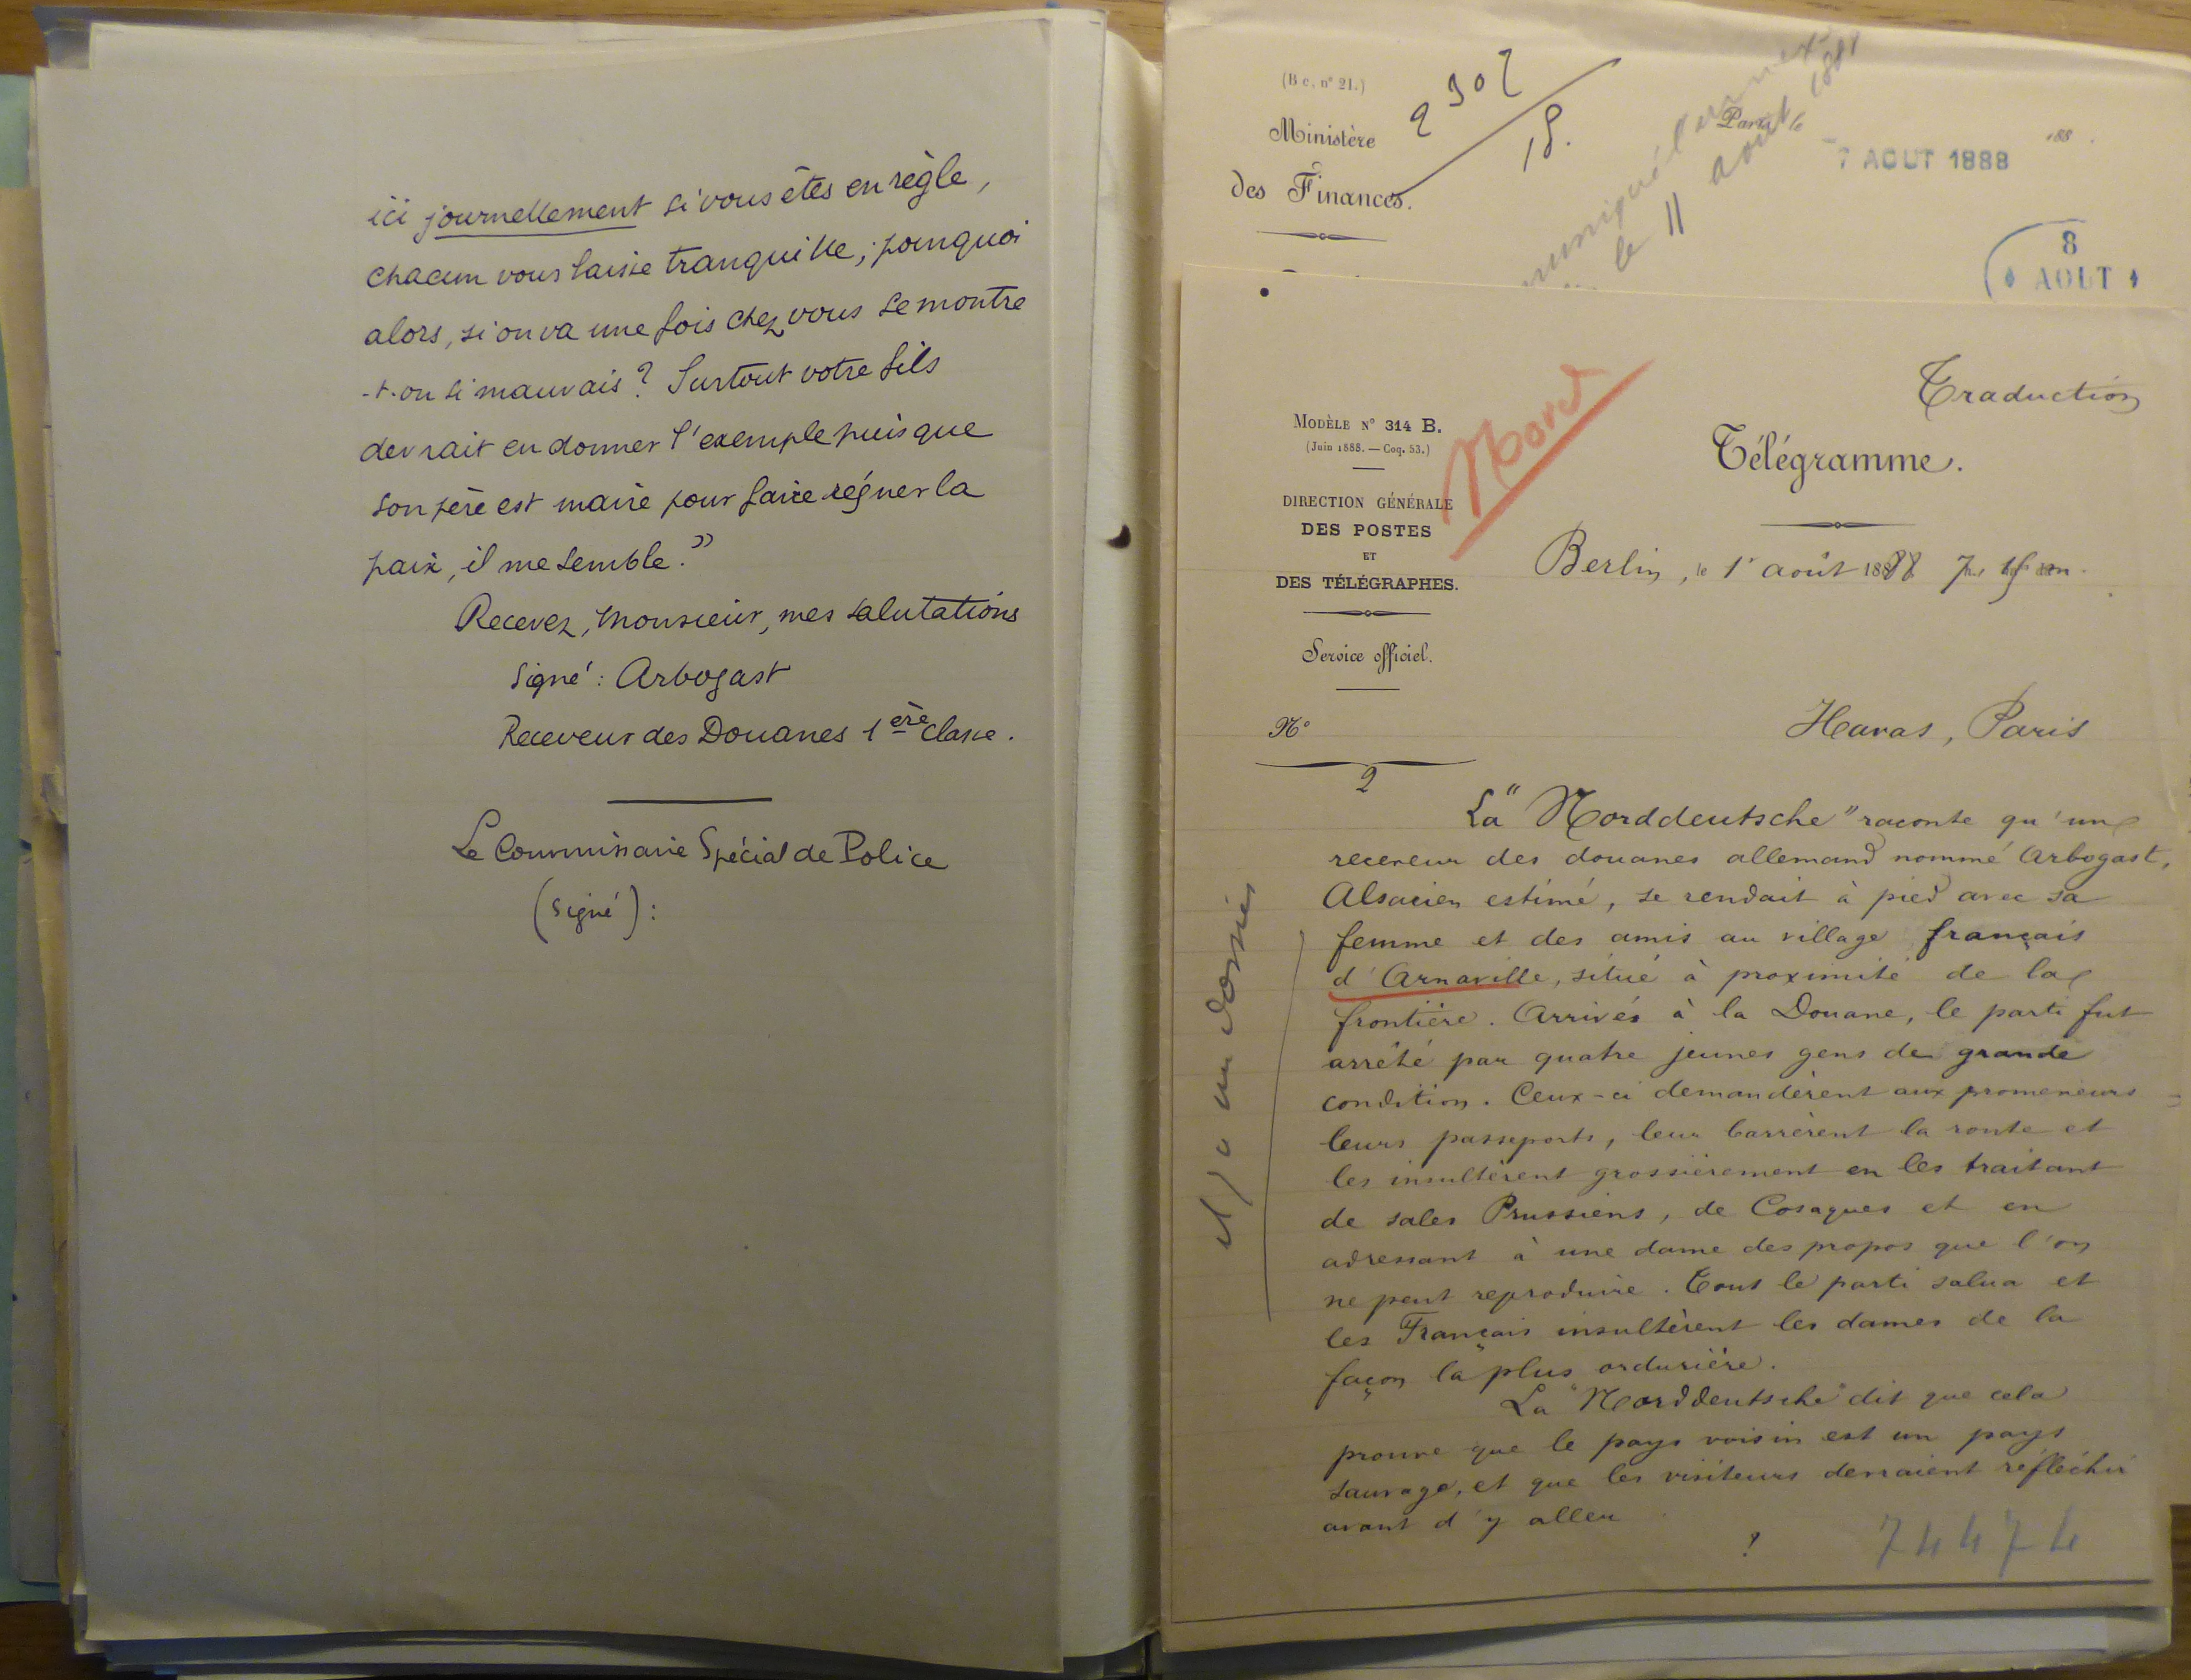 ici journellement si vous êtes en règle,
chacun vous laisse tranquille; pourquoi
alors, si on va une fois chez vous se montre
-t-on si mauvais? Surtout votre fils
devrait en donner l'exemple puisque
son père est maire pour faire régner la
paix, il me semble."
Recevez, Monsieur, mes salutations
signé: Arbogast
Receveur des Douanes 1ère classe.
Le Commissaire Spécial de Police
(signé):
(B c. n° 21.)
Ministère
des Finances.
2302
15.
Paris, le
188 .
7 AOUT 1888
le 11 août 1888
8
AOUT
Traduction
Télégramme.
MODÈLE N° 314 B.
(Juin 1888. — Coq. 53.)
Nord
DIRECTION GÉNÉRALE
DES POSTES
ET
DES TÉLÉGRAPHES.
Service officiel.
N°
2
Berlin, le 1er août 1888
Havas, Paris
La "Norddeutsche" raconte qu'un
receveur des douanes allemand nommé Arbogast,
Alsacien estimé, se rendait à pied avec sa
femme et des amis au village français
d'Arnaville, situé à proximité de la
frontière. Arrivés à la Douane, le parti fut
arrêté par quatre jeunes gens de grande
condition. Ceux-ci demandèrent aux promeneurs
leurs passeports, leur barrèrent la route et
les insultèrent grossièrement en les traitant
de sales Prussiens, de Cosaques et en
adressant à une dame des propos que l'on
ne peut reproduire. Tout le parti salua et
les Français insultèrent les dames de la
façon la plus ordurière.
La "Norddeutsche" dit que cela
prouve que le pays voisin est un pays
sauvage, et que les visiteurs devraient réfléchir
avant d'y aller
?
74474
il y a un dossier